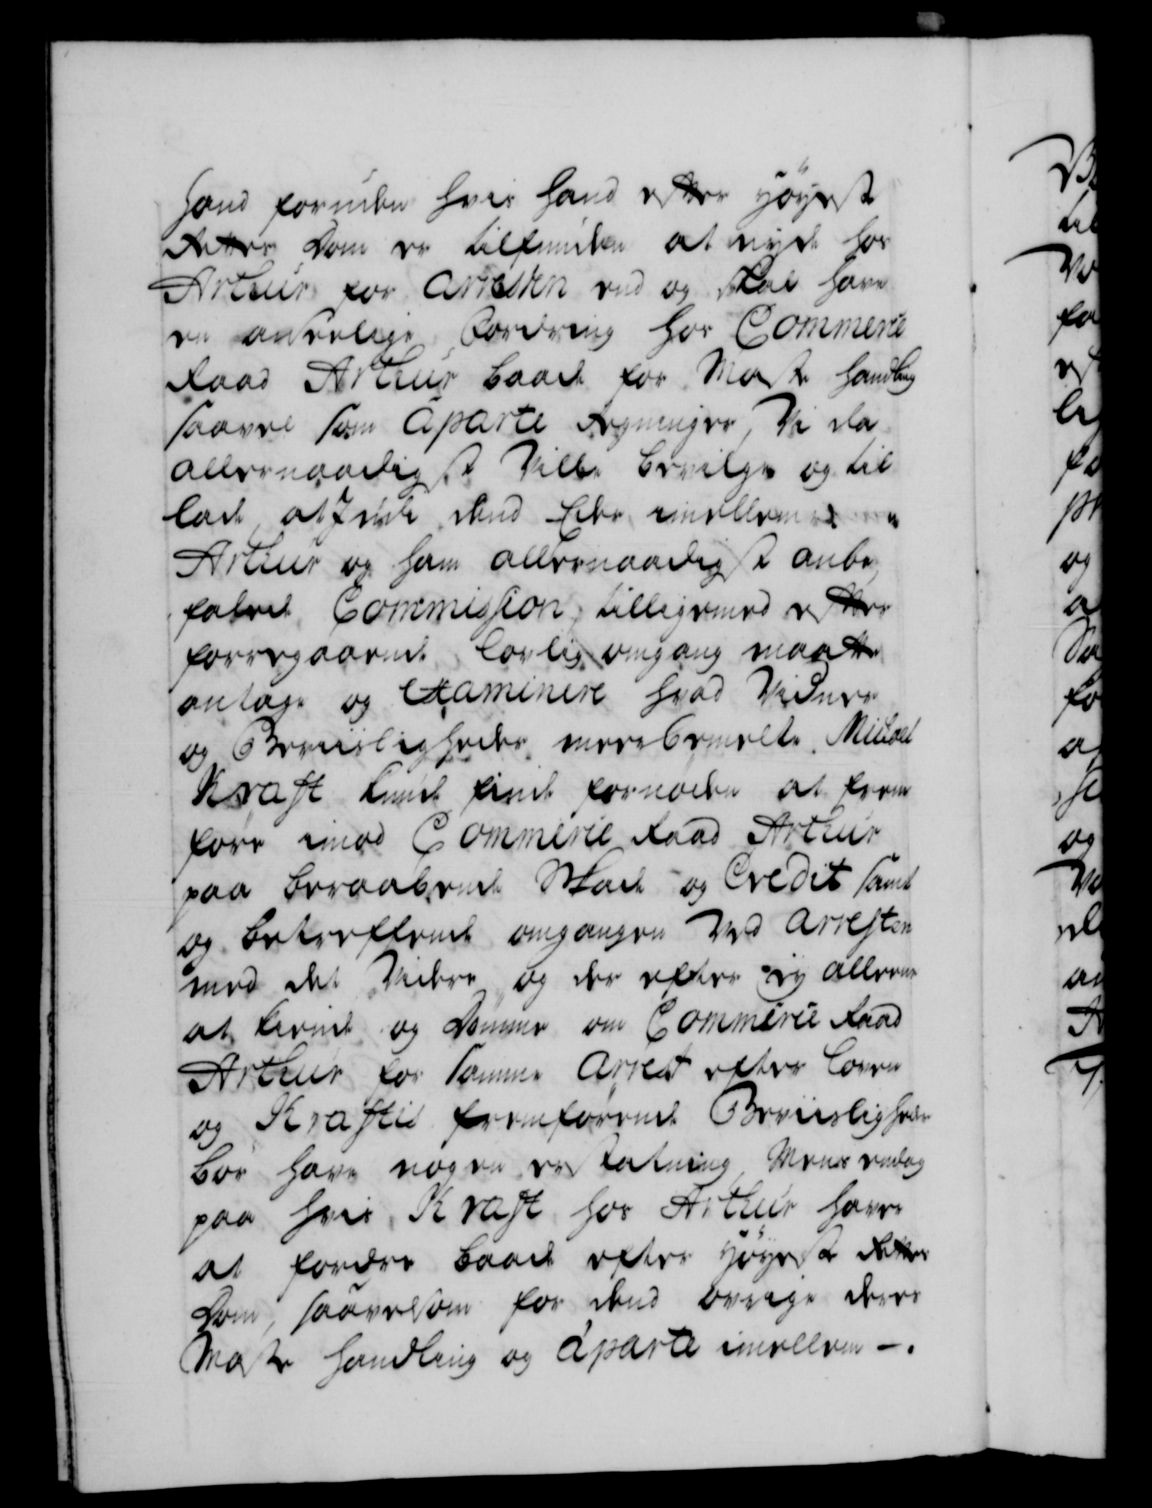 hand foruden hvis hand efter Höyeste
Retters Dom er tilfunden at nyde hos
Arthur for Arresten end og skal have
en anseelige Fordring hos Commerce
Raad Arthur baade for Maste handling
saavel som aparte Regninger, Vi da
allernaadigst Ville bevilge og til
lade, at I udi dend Eder imellem
Arthur og ham allernaadigst anbe
falede Commission, tilligemed efter
foregaaende lovlig omgang maatte
antage og Examinere hvad Vidner
og Beviisligheder meerbemelte Michael
Kraft kunde finde fornøden at frem
føre imod Commerce Raad Arthur
paa beraabende Skade og Credit samt
og betreffende omgangen Ved Arresten
med det Videre, og der efter ey alleene
at kiende og Dømme om Commerce Raad
Arthur for samme Arrest efter Loven
og Krafts fremførende Beviisligheder
bør have nogen erstatning, Mens endog
paa hvis Kraft hos Arthur haver
at fordre baade efter Höyeste Retters
Dom, saavelsom for dend øvrige deres
Maste handling og aparte imellem –.